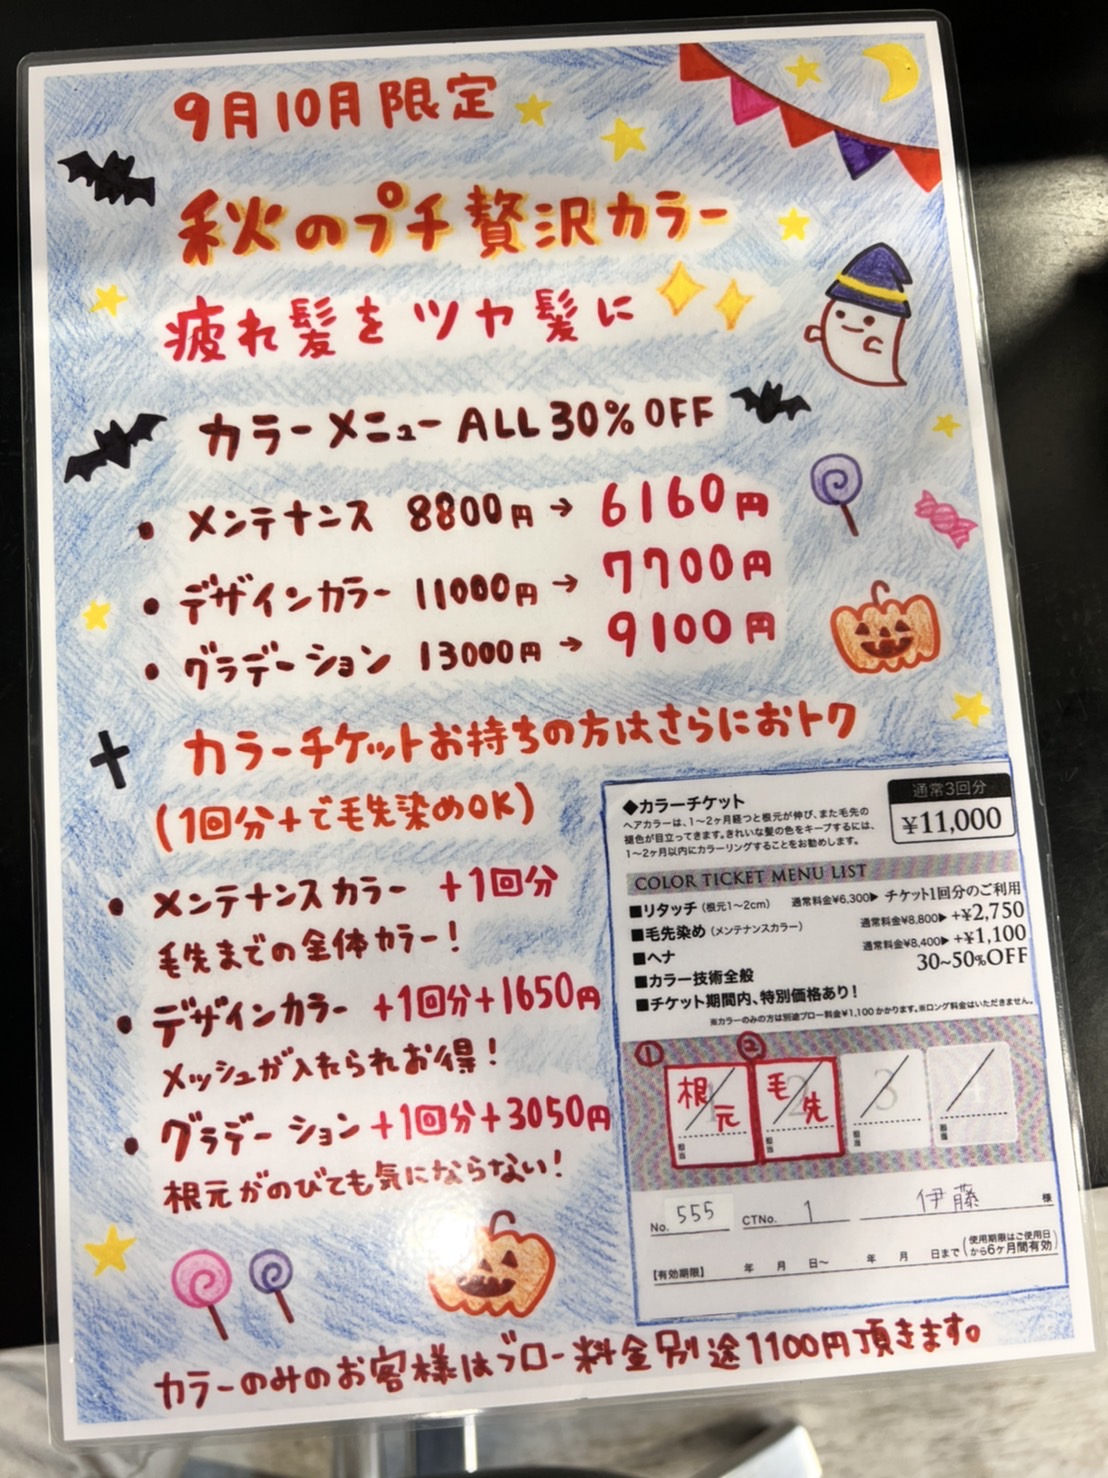 9月10月限定
秋のプチ贅沢カラー
疲れ髪をツヤ髪に
カラーメニューALL30%OFF
・メンテナンス 8800円→6160円
・デザインカラー 11000円→7700円
・グラデーション 13000円→9100円
カラーチケットお持ちの方はさらにおトク
(1回分+で毛先染めOK)
・メンテナンスカラー +1回分
毛先までの全体カラー!
・デザインカラー +1回分+1650円
メッシュが入れられお得!
・グラデーション+1回分+3050円
根元がのびても気にならない!
◆カラーチケット
ヘアカラーは、1〜2ヶ月経つと根元が伸び、また毛先の
褪色が目立ってきます。きれいな髪の色をキープするには、
1〜2ヶ月以内にカラーリングすることをお勧めします。
通常3回分
¥11,000
COLOR TICKET MENU LIST
■リタッチ(根元1〜2cm) 通常料金¥6,300▶ チケット1回分のご利用
■毛先染め(メンテナンスカラー) 通常料金¥8,800▶ +¥2,750
■ヘナ 通常料金¥8,400▶ +¥1,100
■カラー技術全般 30~50%OFF
■チケット期間内、特別価格あり!
※カラーのみの方は別途ブロー料金¥1,100かかります。※ロング料金はいただきません。
① ②
根元 毛先
1 2 3 4
担当 担当 担当 担当
No. 555 CTNo. 1 伊藤 様
【有効期限】 年 月 日〜 年 月 日まで(使用期限はご使用日から6ヶ月間有効)
カラーのみのお客様はブロー料金別途1100円頂きます。